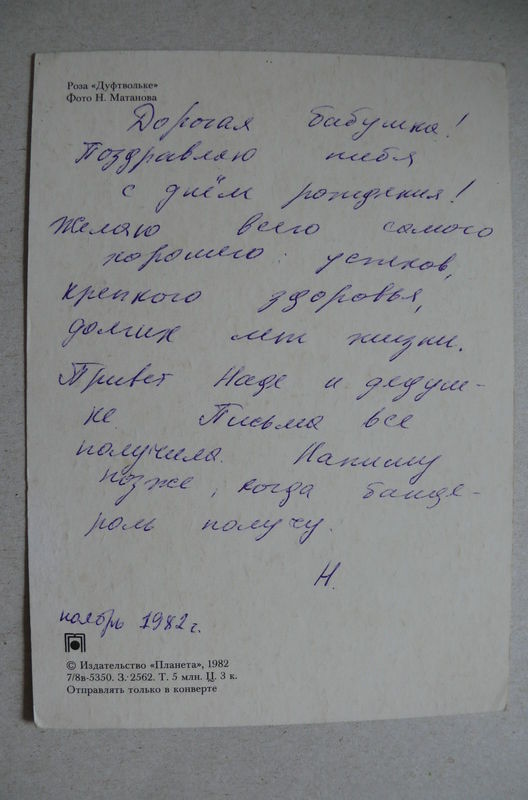 Роза «Дуфтвольке»
Фото Н. Матанова
Дорогая бабушка!
Поздравляю тебя
с днём рождения!
Желаю всего самого
хорошего: успехов,
крепкого здоровья,
долгих лет жизни.
Привет Наде и дедуш-
ке. Письма все
получила. Напишу
позже, когда банде-
роль получу.
Н.
ноябрь 1982 г.
© Издательство «Планета», 1982
7/8в-5350. З. 2562. Т. 5 млн. Ц. 3 к.
Отправлять только в конверте